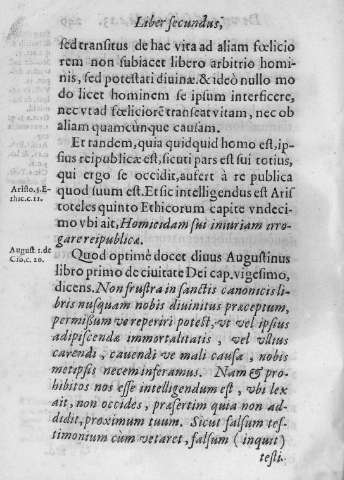 Liber secundus,
sed transitus de hac vita ad aliam fœlicio
rem non subiacet libero arbitrio homi-
nis, sed potestati diuinæ. & ideò nullo mo
do licet hominem se ipsum interficere,
nec vt ad fœliciorē transeat vitam, nec ob
aliam quamcùnque causam.
Et tandem, quia quidquid homo est, ip-
sius reipublicæ est, sicuti pars est sui totius,
qui ergo se occidit, aufert à re publica
quod suum est. Et sic intelligendus est Aris
Aristo. 5. E-
thic. c. 11.
toteles quinto Ethicorum capite vndeci-
mo vbi ait, Homicidam sui iniuriam irro-
gare reipublicæ.
August. 1. de
Ciu. c. 20.
Quod optimè docet diuus Augustinus
libro primo de ciuitate Dei cap. vigesimo,
dicens. Non frustra in sanctis canonicis li-
bris nusquam nobis diuinitus præceptum,
permissum ve reperiri potest, vt vel ipsius
adipiscendæ immortalitatis, vel vllius
carendi, cauendi ve mali causa, nobis
metipsis necem inferamus. Nam & pro-
hibitos nos esse intelligendum est, vbi lex
ait, non occides, præsertim quia non ad-
didit, proximum tuum. Sicut falsum tes-
timonium cùm vetaret, falsum (inquit)
testi-